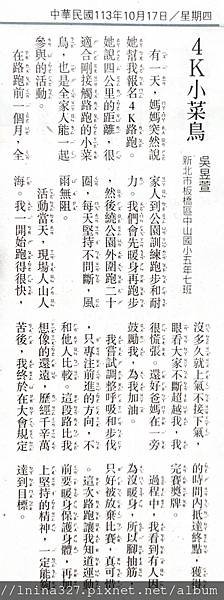 中華民國113年10月17日／星期四
4K小菜鳥
吳昱萱
新北市板橋區中山國小五年七班
有一天，媽媽突然說
她幫我報名4K路跑。
她說四公里的距離，很
適合剛接觸路跑的小菜
鳥，也是全家人能一起
參與的活動。
在路跑前一個月，全
家人到公園訓練跑步和耐
力。我們會先暖身再跑步
，然後繞公園外圍跑二十
圈，每天堅持不間斷，風
雨無阻。
活動當天，現場人山人
海。我一開始跑得很快，
沒多久就上氣不接下氣，
眼看大家不斷超越我，我
很慌張，還好爸媽在一旁
鼓勵我，為我加油。
我嘗試調整呼吸和步伐
，只專注前進的方向，不
和他人比較。這段路比我
想像的還遠，歷經千辛萬
苦後，我終於在大會規定
的時間內抵達終點，獲得
完賽獎牌。
過程中，我看到有人因
為沒暖身，所以腳抽筋，
只好被放棄比賽，真可惜
。這次路跑讓我知道運動
前要暖身保護身體，再加
上堅持的精神，一定能夠
達到目標。
://1nina327.pixnet.net/album/